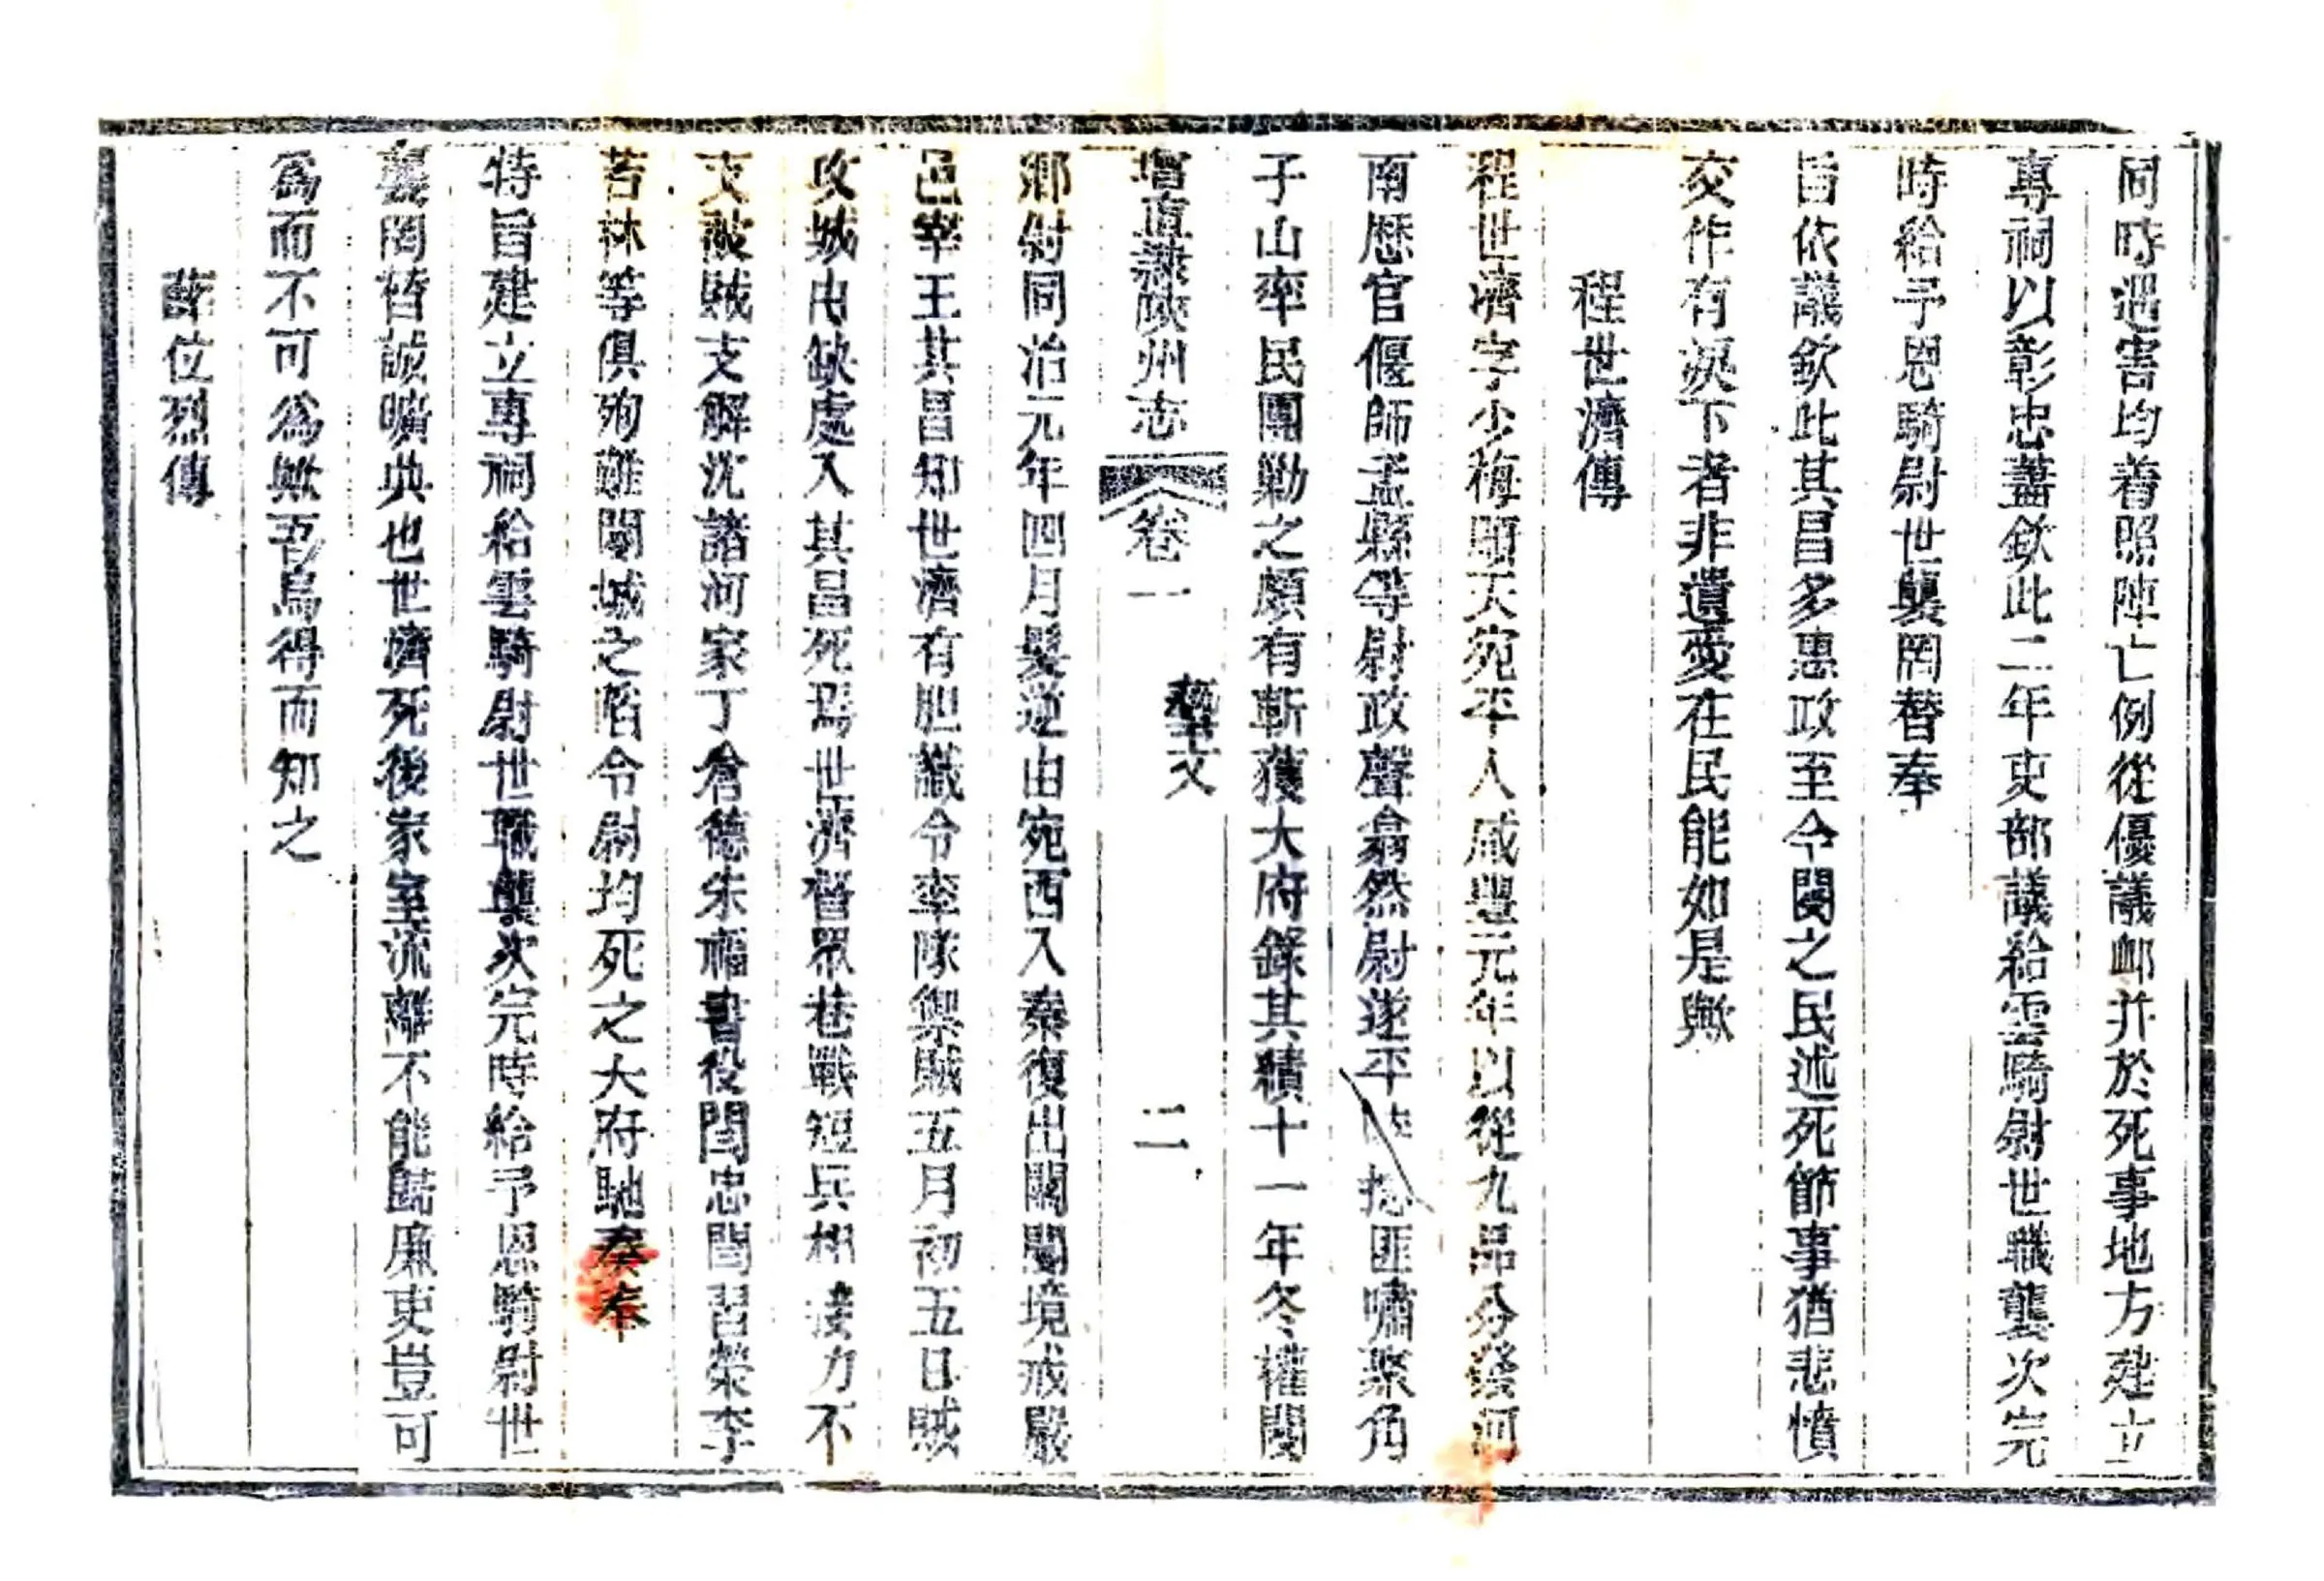 同時遇害均着照陣亡例從優議䘏并於死事地方建立
專祠以彰忠藎欽此二年吏部議給雲騎尉世職襲次完
時給予恩騎尉世襲罔替奉
旨依議欽此其昌多惠政至今閿之民述死節事猶悲憤
交作有淚下者非遺愛在民能如是歟
程世濟傳
程世濟字少梅順天宛平人咸豐元年以從九品分發河
南歷官偃師孟縣等尉政聲翕然尉遂平時捻匪嘯聚角
子山率民團勦之頗有斬獲大府錄其績十一年冬權閿
增直隸陝州志 卷一 藝文 二
鄉尉同治元年四月髮逆由宛西入秦復出關閿境戒嚴
邑宰王其昌知世濟有胆識令率隊禦賊五月初五日賊
攻城由缺處入其昌死焉世濟督眾巷戰短兵相接力不
支被賊支解沈諸河家丁倉德朱福書役閆忠閆習榮李
若林等俱殉難閿城之陷令尉均死之大府馳奏奉
特旨建立專祠給雲騎尉世職襲次完時給予恩騎尉世
襲罔替誠曠典也世濟死後家室流離不能歸廉吏豈可
為而不可為歟吾烏得而知之
薛位烈傳